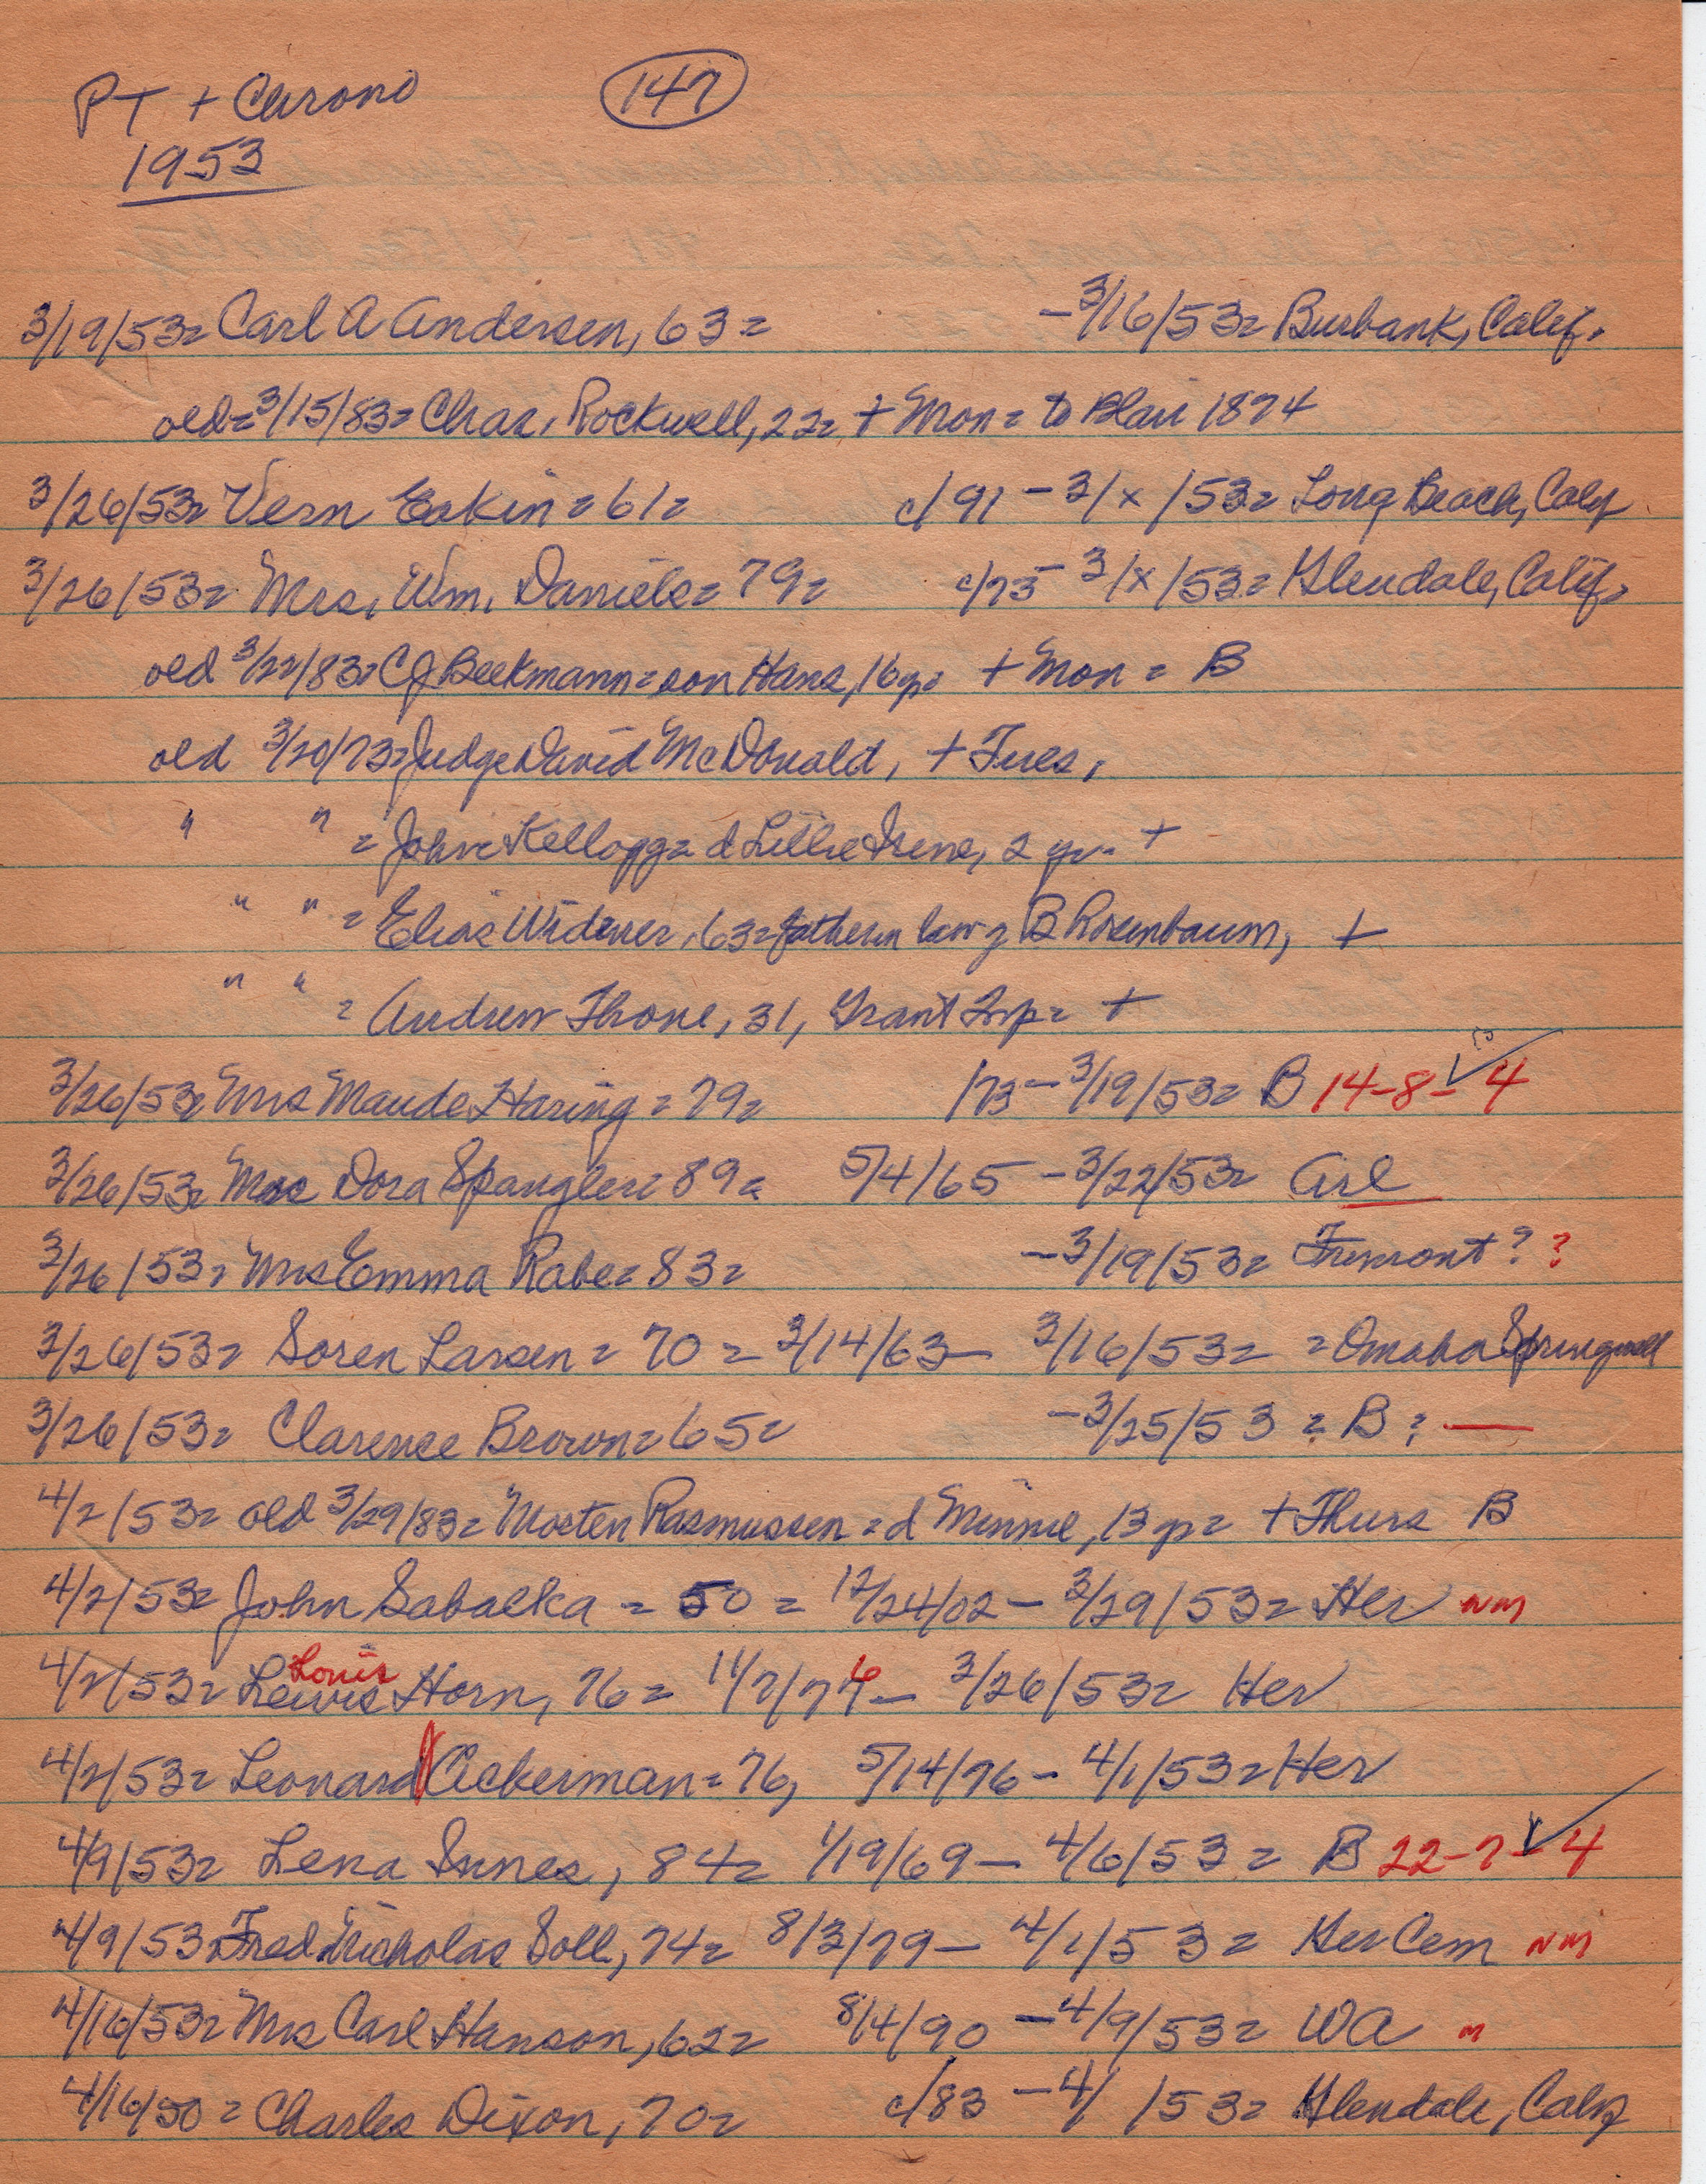 PT + Chrono 147
1953
3/19/53= Carl A Andersen, 63= - 3/16/53= Burbank, Calif.
old= 3/15/83= Chas. Rockwell, 22= + Mon= to Blair 1874
3/26/53= Vern Eakin= 61= c/91 - 3/x/53= Long Beach, Calif
3/26/53= Mrs. Wm. Daniels= 79= c/73 - 3/x/53= Glendale, Calif.
old 3/22/83= C J Beekmann= son Hans, 16 yr= + Mon = B
old 3/20/73= Judge David McDonald, + Tues,
" " = John Kellogg= d Lillie Irene, 2 yr. +
" " = Elias Widener, 63= father in law of B Rosenbaum, +
" " = Andrew Thone, 31, Grant Twp= +
3/26/53= Mrs Maude Haring= 79= /73 - 3/19/53= B 14-8-4
3/26/53= Mrs Dora Spangler= 89= 5/4/65 - 3/22/53= Arl
3/26/53= Mrs Emma Rabe= 83= - 3/19/53= Fremont? ?
3/26/53= Soren Larsen= 70 = 3/14/63 - 3/16/53= = Omaha Springwell
3/26/53= Clarence Brown= 65= - 3/25/53 = B? —
4/2/53= old 3/29/83= Mosten Rasmussen= d Minnie, 13 yr= + Thurs B
4/2/53= John Sabatka = 50 = 12/24/02 - 3/29/53= Her NM
4/2/53= Lewis Louis Horn, 76= 11/7/74 6 - 3/26/53= Her
4/2/53= Leonard Ackerman= 76, 5/14/76 - 4/1/53= Her
4/9/53= Lena Innes, 84= 1/19/69 - 4/6/53= B 22-7-4
4/9/53= Fred Nicholas Soll, 74= 8/3/79 - 4/1/53= Her Cem NM
4/16/53= Mrs Carl Hanson, 62= 8/4/90 - 4/9/53= WA m
4/16/50= Charles Dixon, 70= c/83 - 4/ /53= Glendale, Calif